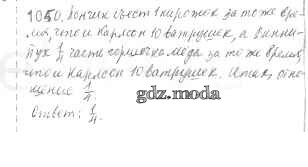 1050. Пончик съест 1 пирожок за то же вре-
мя, что и Карлсон 10 ватрушек, а Винни-
Пух 1/4 часть горшочка меда за то же время,
что и Карлсон 10 ватрушек. Итак, отно-
шение 1/4.
gdz.moda
Ответ: 1/4.